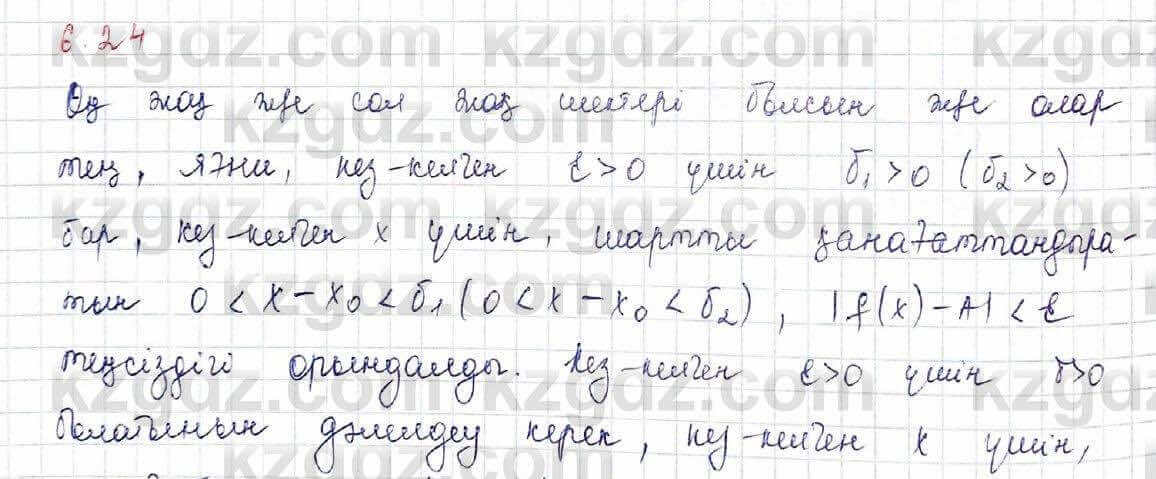 6.24
Оң жақ және сол жақ шектері болсын және олар
тең, яғни, кез-келген ε>0 үшін δ₁>0 (δ₂>0)
бар, кез-келген x үшін, шартты қанағаттандыра-
тын 0<x-x₀<δ₁(0<x-x₀<δ₂), |f(x)-A|<ε
теңсіздігі орындалды. Кез-келген ε>0 үшін δ>0
болатынын дәлелдеу керек, кез-келген x үшін,